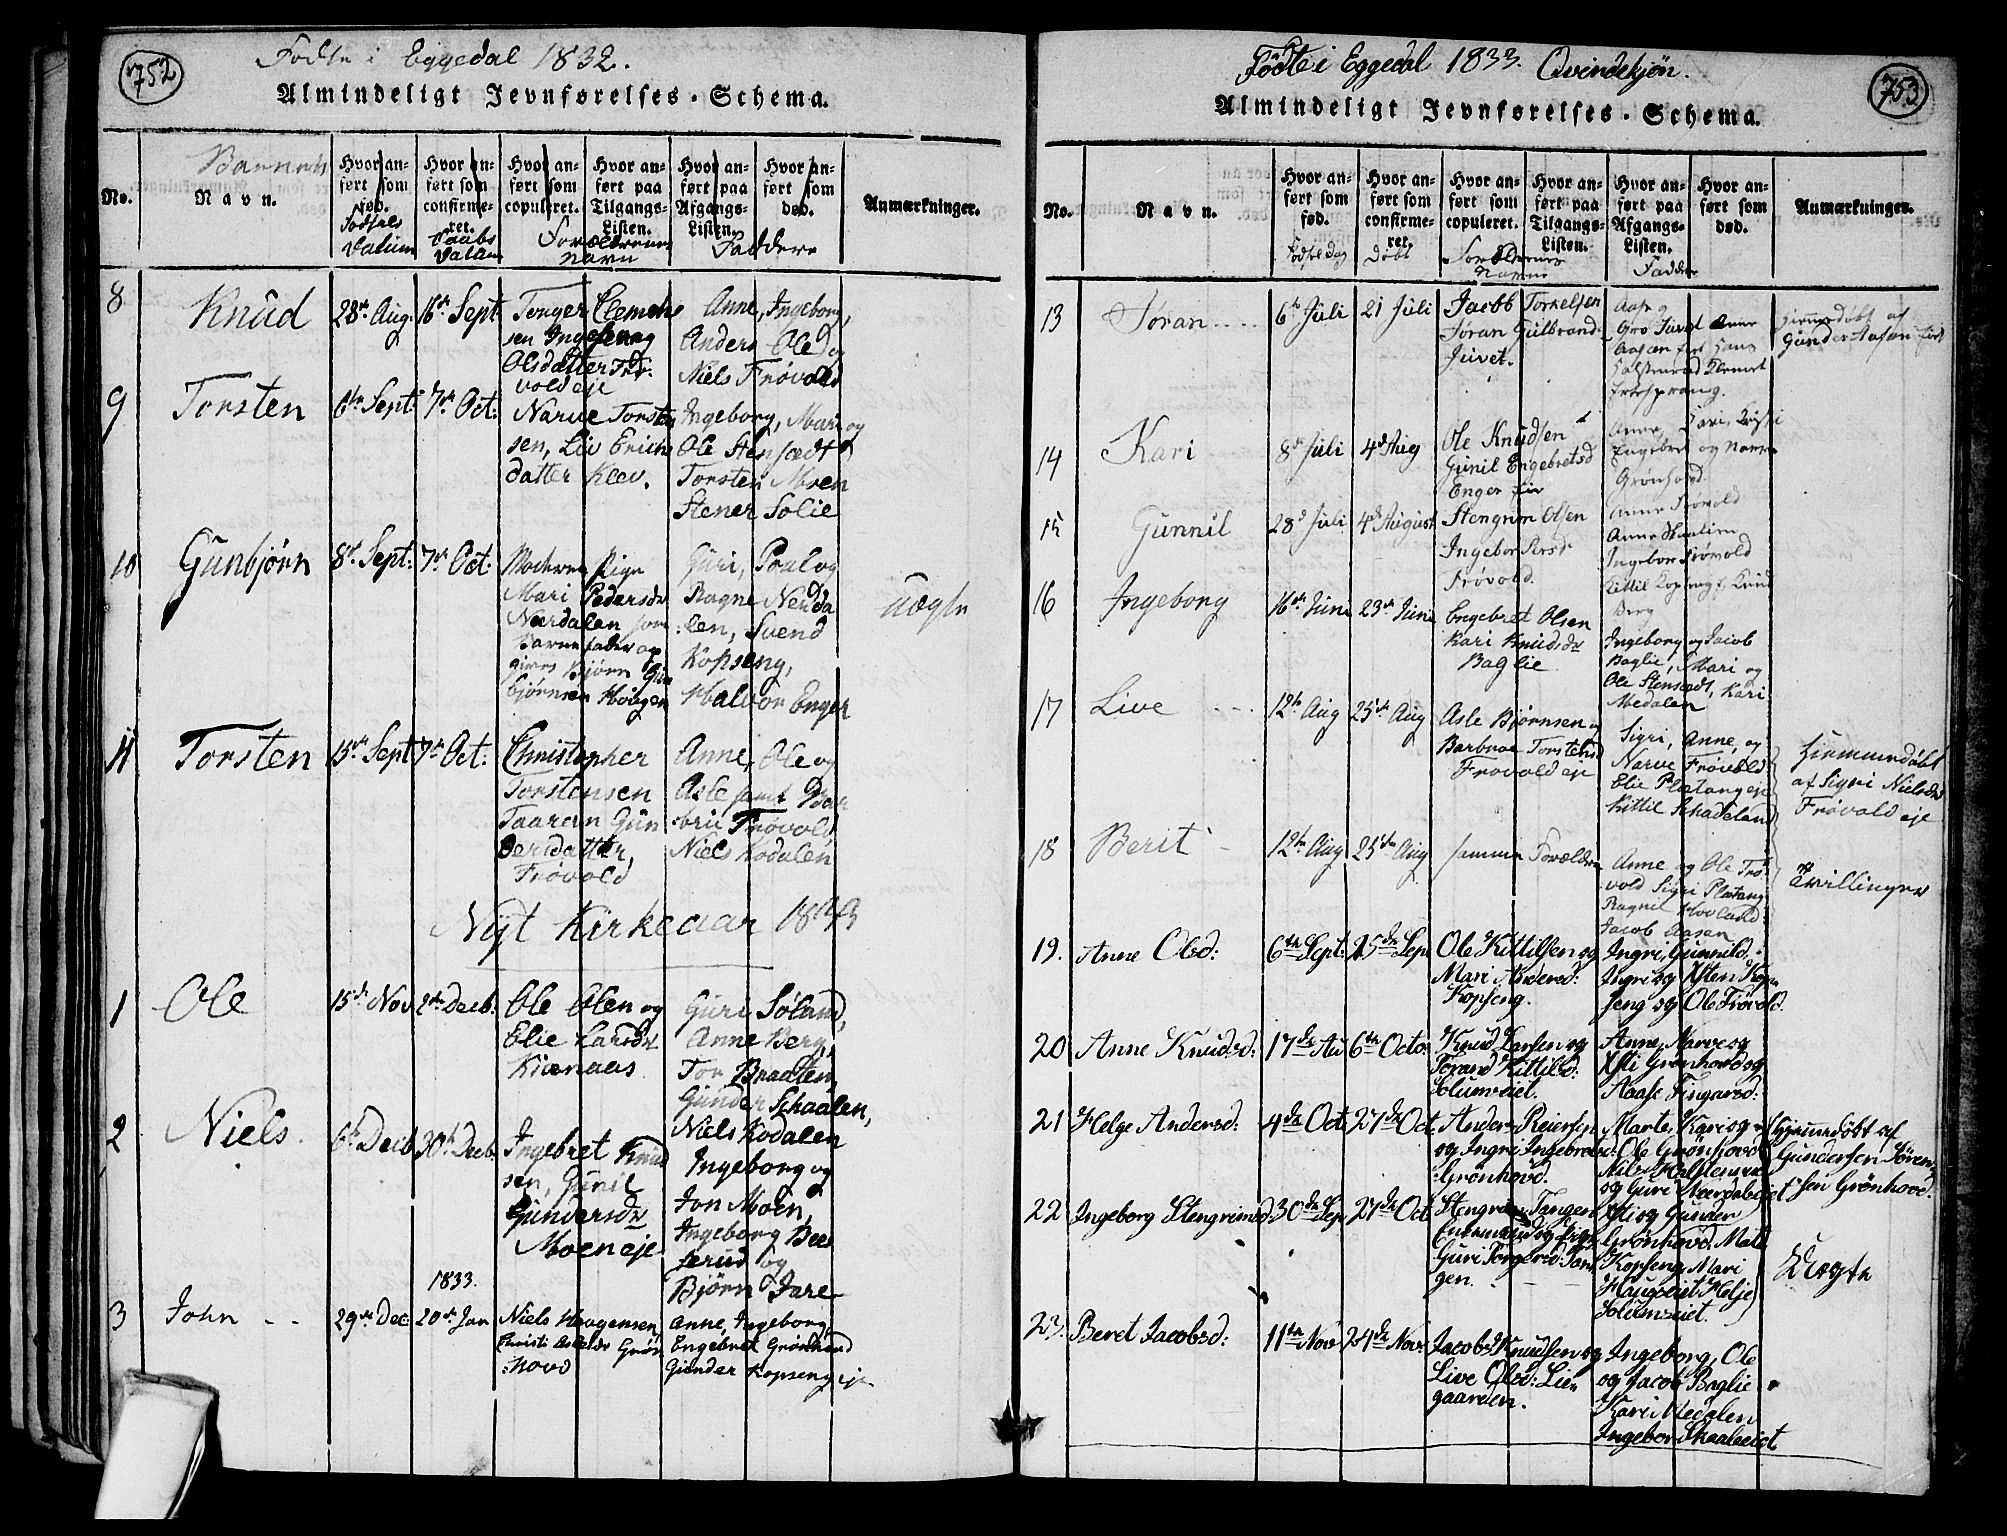 752
Fødte i Eggedal 1832.
Almindeligt Jevnførelses-Schema.
No.
Barnets
Navn.
Hvor anført som fød.
Fødsels Datum
Hvor anført som confirmeret.
Daabs Datum
Hvor anført som copuleret.
Hvor anført paa Tilgangs-Listen.
Forældrenes Navn
Hvor anført paa Afgangs-Listen.
Hvor anført som død.
Faddere
Anmærkninger.
8 Knud 28de Aug. 16de Sept.
Torger Clemetsen Ingeborg
Olsdatter Frøvold eje
Anne, Ingeborg,
Anders Ole og
Niels Frøvold
9 Torsten 6te Sept: 7de Oct:
Narve Torstensen, Liv Erichsdatter Klev.
Ingeborg, Mari og
Ole Stensædt
Torsten Moen
Stener Solie
10 Gunbjørn 8de Sept: 7de Oct:
Moderen Pige
Mari Pedersdr
Nærdalen som
Barnefader opgives Bjørn Gunbjørnsen Hougen
Guri, Poul og
Ragne Nerdalen, Svend
Kopseng,
Halvor Enger
Uægte
11 Torsten 15de Sept 7de Oct:
Christopher
Torstensen
Taaran Gundersdatter,
Frøvold
Anne, Ole og
Asle samt
Frøvold
Niels Kodalen
Nyt Kirkeaar 1833
1 Ole 15de Nov 2den Decb.
Ole Olen og
Elie Larsdr
Kirenaes
Guri Søland,
Anne Berg,
Tor Braaten,
Gunder Schaalen,
Niels Kodalen
2 Niels. 6te Decb. 30te Decb.
Ingebret Knudsen, Gunil
Gundersdr
Moeneje
Ingeborg og
Jon Moen,
Ingeborg
og
Bjørn Jare
1833.
3 John 29de Dec: 20de Jan
Niels Haagensen
Christi Asledr Grønhovd
Anne, Ingeborg,
Engebret Grønhovd
Gunder Kopseng eje
753
Fødte i Eggedal 1833. Qvindekjøn.
Almindeligt Jevnførelses-Schema.
No.
Navn.
Hvor anført som fød.
Fødselsdag
Hvor anført som confirmeret.
Døbt
Hvor anført som copuleret.
Hvor anført paa Tilgangs-Listen.
Forældrenes Navne
Hvor anført paa Afgangs-Listen.
Hvor anført som død.
Fadder
Anmærkninger.
13 Jøran 6te Juli 21 Juli
Jacob Torkelsen
Jøran Gulbrand.
Juvet.
Aase og
Gro Juvet Anne
hjemmedøbt af
Gunder Aasen
14 Kari 8de Juli 4de Aug
Ole Knudsen
Gunil Engebretsd
Enger eje
Anne, Kari,
Engebret og
Grønhovd
15 Gunnil 28de Juli 4de August
Stengrim Olsen
Ingebor
Frøvold.
Anne Frøvold
Anne
Ingebor Frøvold
Kittil Kopseng, Knud
Berg
16 Ingeborg 16de Juni 23de Juni
Engebret Olsen
Kari Knudsdr
Baglie
Ingeborg og Jacob
Baglie, Mari og
Ole Stensædt, Kari
Medalen
17 Live 12te Aug 25de Aug
Asle Bjørnsen og
Barbroe Torstensd
Frøvold eje
Sigri, Anne, og
Narve Frøvold
Elie Plataneje
Kittil Schadeland
Hiemmedøbt
af Sigri Nielsdr
Frøvold eje
18 Berit 12te Aug 25de Aug
samme Forældre
Anne og Ole Frøvold Sigri Platang
Ragnil Hovland:
Jacob Aasen
Tvillinger
19. Anne Olsd: 6te Sept: 15de Sep
Ole Kittilsen og
Mari Andersd:
Kopseng.
Ingri, Gunnild.
Ingri og Østen Kopseng og Ole Frøvold.
20 Anne Knudsd: 17de Au 6te Octo:
Knud Larsen og
Torand Kittilsd:
Solumseiet.
Anne, Narve og
Østi Grønhovd og
Aase Fingarsd:
21 Helge Andersd: 4de Oct 27de Oct
Anders Reiersen
og Ingri Ingebretsd:
Grønhovd.
Marte, Kari og
Ole Grønhovd
Nils Halstensrud
og Guri Nærdaleiet
Hjemmedøbt af
Gundersen Sørensen Grønhovd.
22 Ingeborg Stengrimsd. 30de Sep 27de Oct
Stengrim Tangen
Enkemand og Pige
Guri Torgersd: Tangen.
Østi og Gunder
Grønhovd, Mate
Kopseng, Mari
Haugseiet Helje
Solumseiet.
Uægte
23. Beret Jacobsd: 11te Nov 24de Nov.
Jacob Knudsen og
Live Olsd: Liengaarden.
Ingeborg, Ole
og Jacob Baglie
Kari Medalen
Ingebor Skaaleeiet